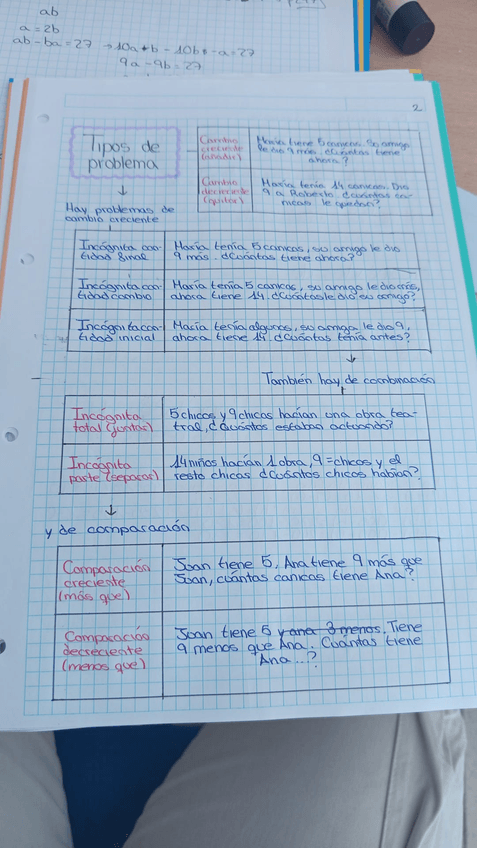 ab
a = 2b
ab - ba = 27 → 10a + b - 10b - a = 27
9a - 9b = 27
2
Tipos de
problema
Cambio
creciente
(añadir)
María tiene 5 canicas. Su amigo
le dio 9 más. ¿Cuántas tiene
ahora?
Cambio
decreciente
(quitar)
María tenía 14 canicas. Dio
9 a Roberto. ¿Cuántas ca-
nicas le quedan?
↓
Hay problemas de
cambio creciente
Incógnita can-
tidad final
María tenía 5 canicas, su amigo le dio
9 más. ¿Cuántas tiene ahora?
Incógnita can-
tidad cambio
María tenía 5 canicas, su amigo le dio más,
ahora tiene 14. ¿Cuántas le dio su amigo?
Incógnita can-
tidad inicial
María tenía algunas, su amiga le dio 9,
ahora tiene 14. ¿Cuántas tenía antes?
↓
También hay de combinación
Incógnita
total (juntas)
5 chicos y 9 chicas hacían una obra tea-
tral, ¿Cuántos estaban actuando?
Incógnita
parte (separar)
14 niños hacían 1 obra, 9 = chicos y el
resto chicas ¿Cuántos chicos habían?
↓
y de comparación
Comparación
creciente
(más que)
Joan tiene 5, Ana tiene 9 más que
Joan, cuántas canicas tiene Ana?
Comparación
decreciente
(menos que)
Joan tiene 5 y ana 3 menos. Tiene
9 menos que Ana. Cuántas tiene
Ana...?